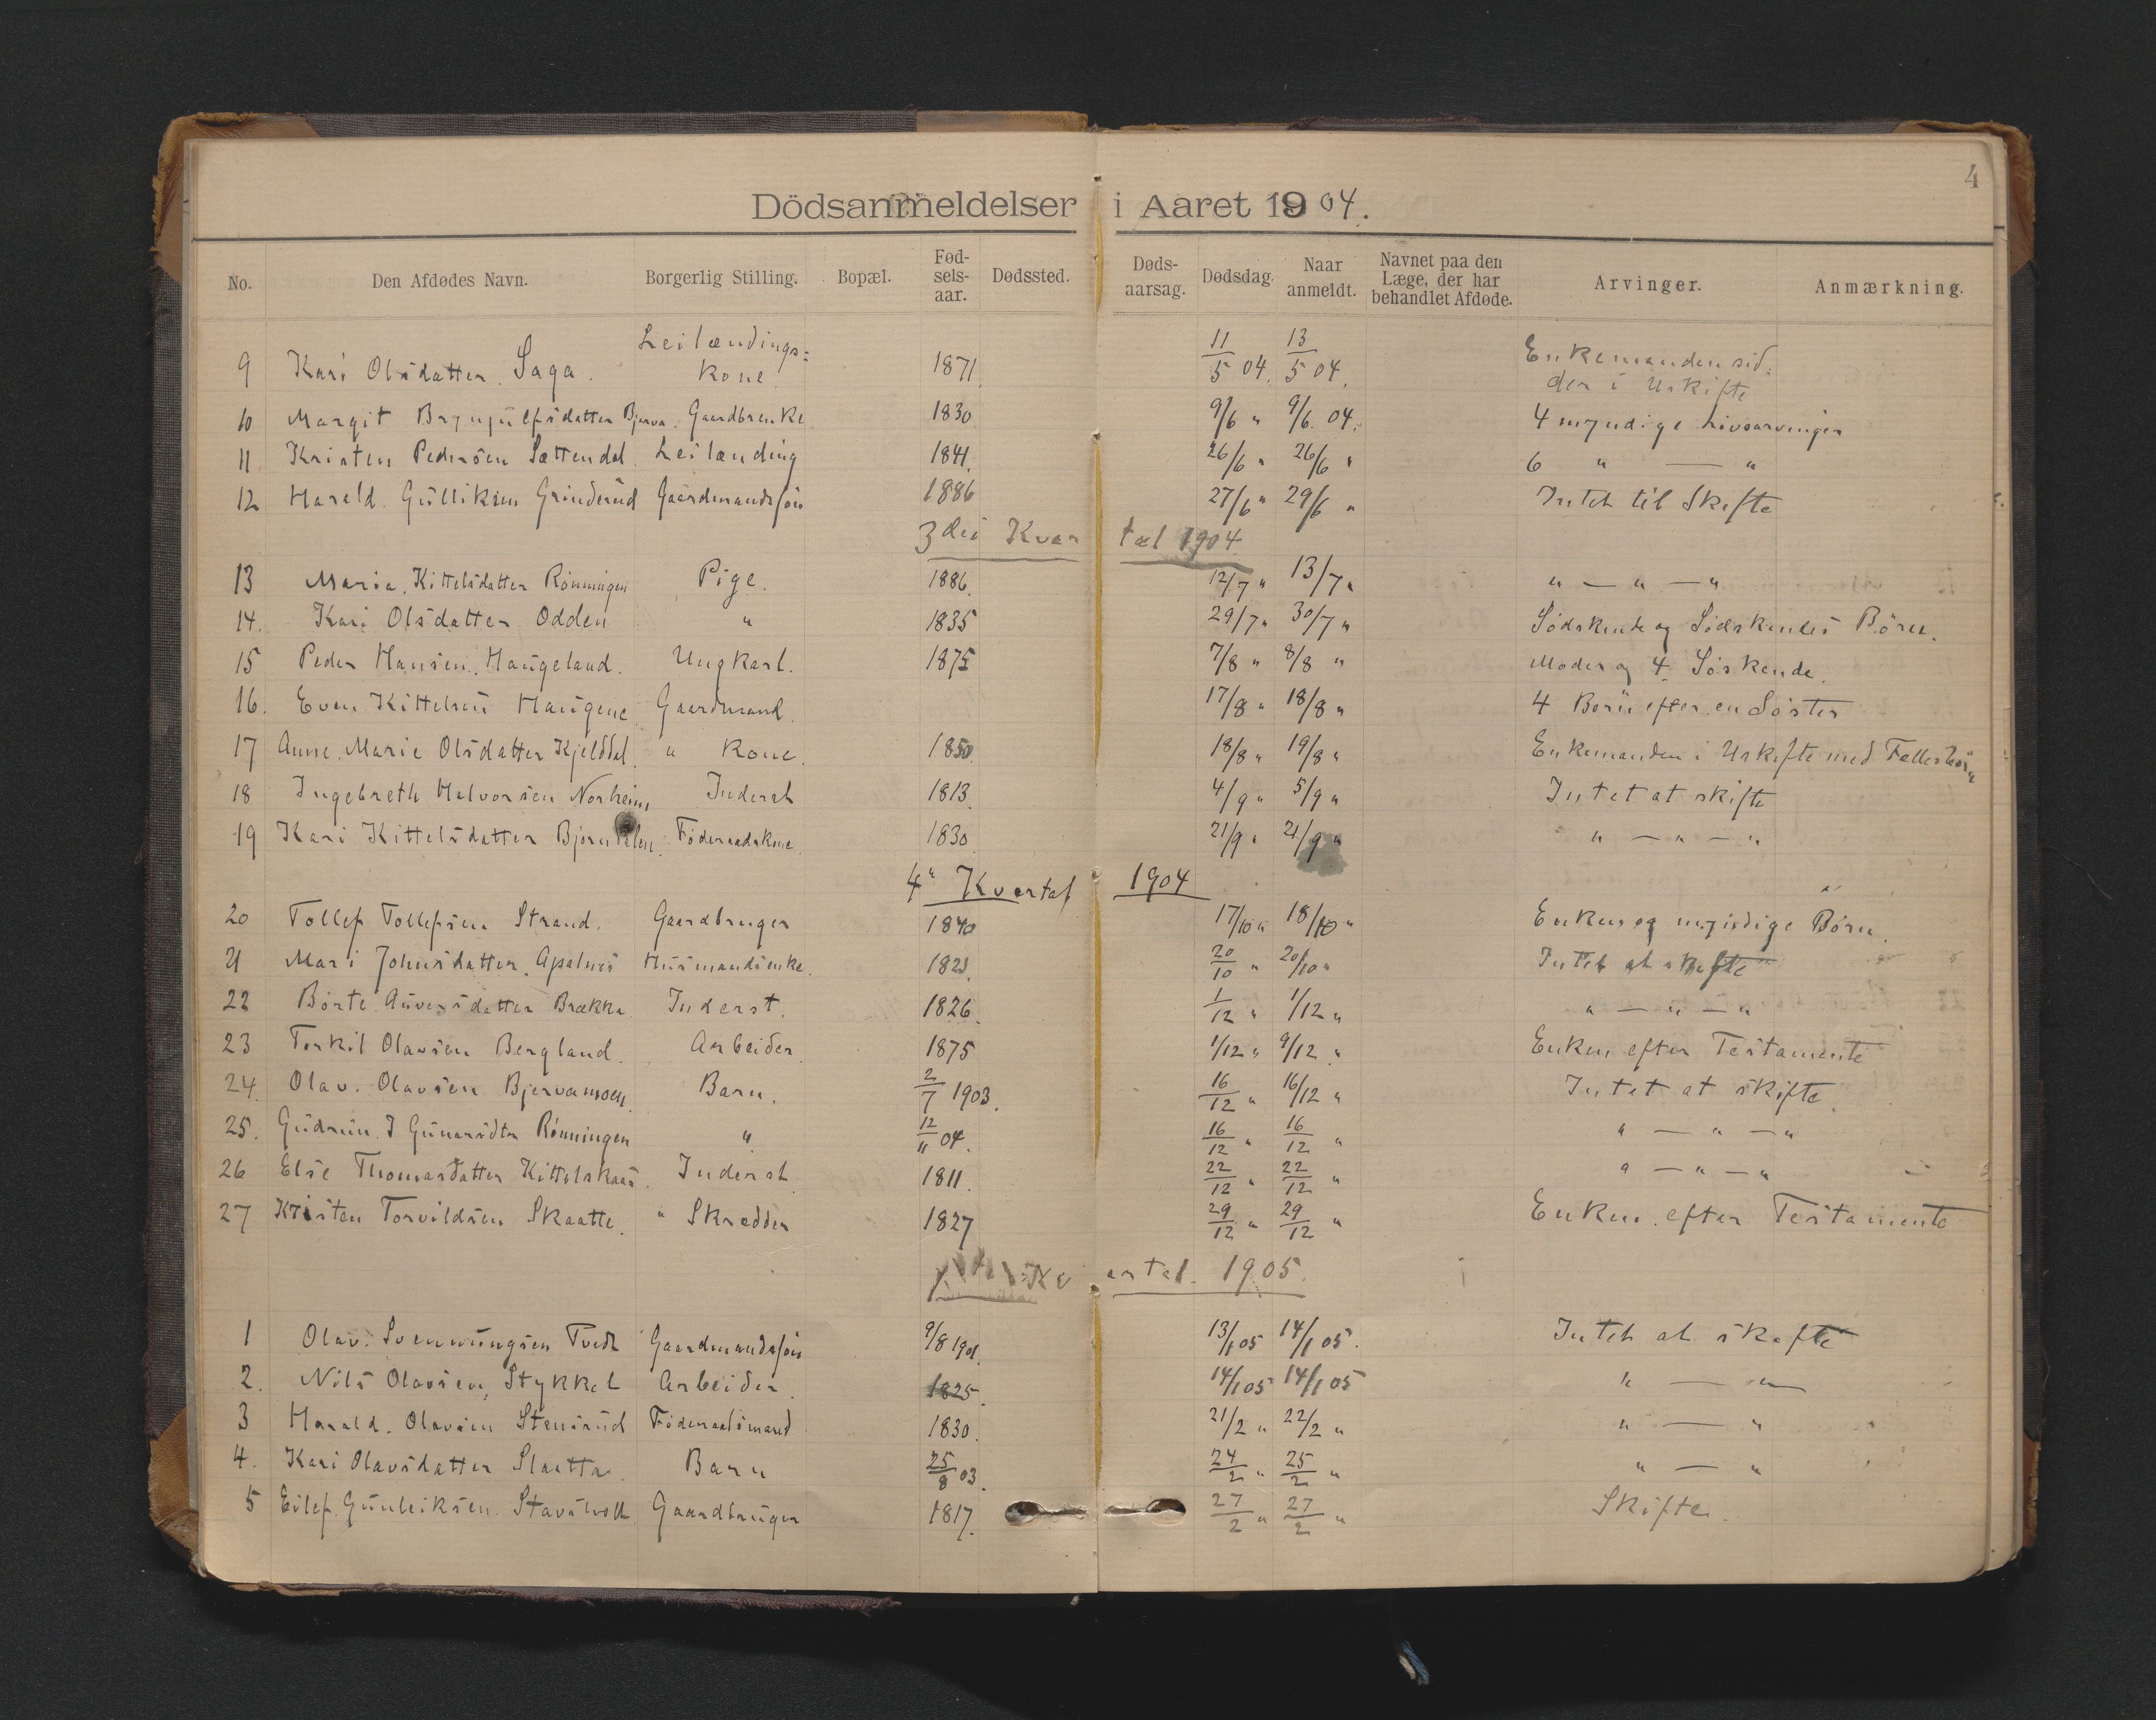 4
Dödsanmeldelser i Aaret 1904.
No. Den Afdødes Navn. Borgerlig Stilling. Bopæl. Fød-sels-aar. Dødssted. Døds-aarsag. Dødsdag. Naar anmeldt. Navnet paa den Læge, der har behandlet Afdøde. Arvinger. Anmærkning.
9 Kari Olsdatter Saga. Leilændings= Kone 1871 11/5 04. 13/5 04. Enkemanden sid= der i Uskifte
10 Margit Brynjulfsdatter Bjerva. Gaardbrenke 1830 9/6 " 9/6 04. 4 myndige Livsarvinger
11 Kristen Pedersen Sættendal Leilænding 1841. 26/6 " 26/6 " 6 " — "
12 Harald Gulliksen Grinderud Gaardmandssøn 1886 27/6 " 29/6 " Intet til Skifte
3die Kvartal 1904
13 Maria Kittelsdatter Rønningen Pige. 1886. 12/7 " 13/7 " " — " — "
14. Kari Olsdatter Odden " 1835 29/7 " 30/7 " Södskende og Södskendes Börn.
15 Peder Hansen Haugeland. Ungkarl. 1875 7/8 " 8/8 " Moder og 4 Söskende.
16. Even Kittelsen Haugene Gaardmand. 17/8 " 18/8 " 4 Børn efter en Søster
17 Anne Marie Olsdatter Kjelddal " Kone. 1850 18/8 " 19/8 " Enkemanden i Uskifte med Fellesbørn
18 Ingebreth Halvorsen Norheim Inderst 1813. 4/9 " 5/9 " Intet at skifte
19 Kari Kittelsdatter Bjorndalen. Föderaadskone 1830 21/9 " 21/9 " " — " — "
4" Kvartal 1904
20 Tollef Tollefsen Strand. Gaardbruger 1840 17/10 " 18/10 " Enken og myndige Børn.
21 Mari Johnsdatter Apalnes Husmandsenke. 1821. 20/10 " 20/10 " Intet at skifte
22 Børte Auversdatter Brækka Inderst. 1826. 1/12 " 1/12 " " — " — "
23 Torkil Olavsen Bergland. Arbeider 1875 1/12 " 9/12 " Enken efter Testamente
24. Olav Olavsen Bjervamoen Barn. 2/7 1903. 16/12 " 16/12 " Intet at skifte.
25. Gudrun J Gunarsdtr Rønningen " 12/11 04. 16/12 " 16/12 " " — " — "
26 Else Thomasdatter Kittelskaas. Inderst 1811. 22/12 " 22/12 " " — " — "
27 Kristen Torvildsen Skaatte. " Skredder 1827 29/12 " 29/12 " Enken efter Testamente
1 Kvartal 1905.
1 Olav Svennungsen Tvedt Gaardmandssøn 9/8 1901. 13/1 05 14/1 05. Intet at skifte
2. Nils Olavsen Stykket Arbeider. 1825. 14/1 05 14/1 05 " — "
3 Harald Olavsen Stensrud Föderaadsmand 1830. 21/2 " 22/2 " " — "
4. Kari Olavsdatter Slaatta. Barn 25/8 03. 24/2 " 25/2 " " — "
5 Eilef Gunleiksen Stavsholt Gaardbruger 1817. 27/2 " 27/2 " Skifte.